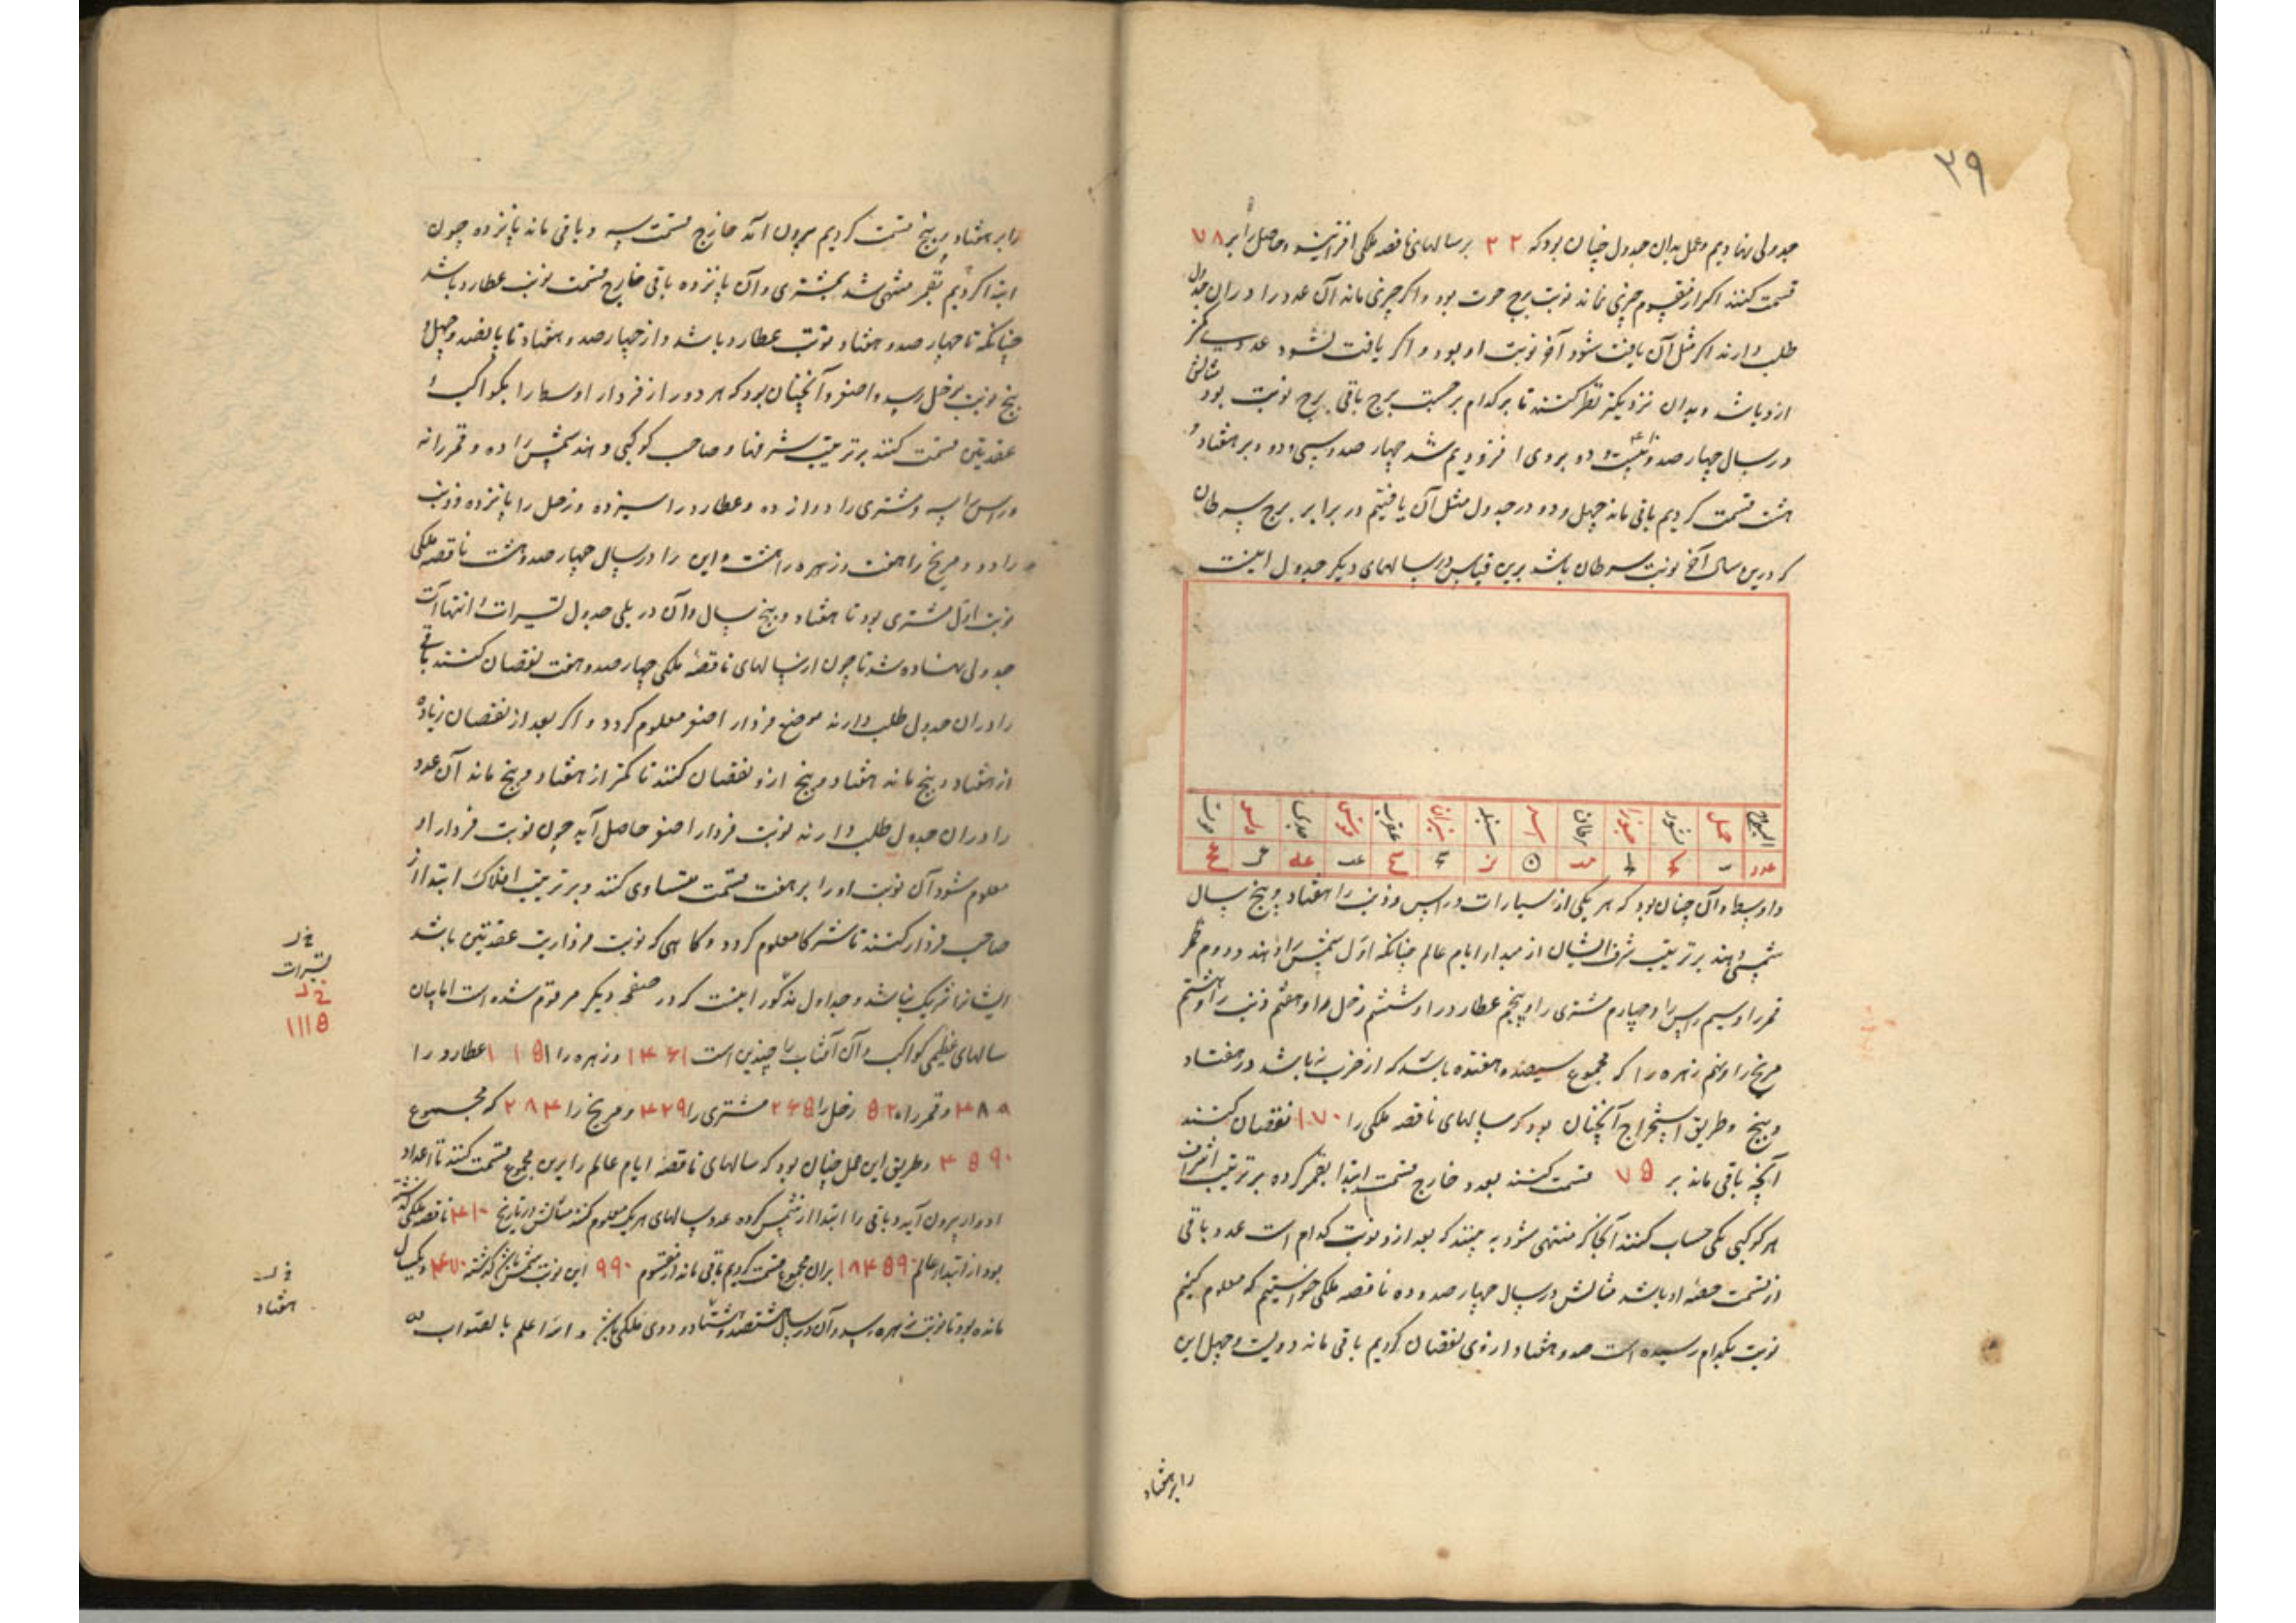 ۲۹
جدولی نهادیم و عمل بدان جدول چنان بود که ۲۲ بر سالهای ناقصه ملکی افزایند و حاصل را بر ۷۸
قسمت کنند اگر از مقسوم چیزی نماند نوبت برج حوت بود و اگر چیزی ماند آن عدد را در ان جدول
طلب دارند اگر مثل آن یافت شود آخر نوبت او بود و اگر یافت نشود عددی که کمتر
ازو باشد و بدان نزدیکتر نظر کنند تا بر کدام برجست برج باقی برج نوبت بود مثالش
در سال چهار صد و ده بیست و دو بروی افزودیم شد چهار صد و سی و دو و بر هفتاد و
هشت قسمت کردیم باقی ماند چهل و دو در جدول مثل آن یافتیم در برابر برج سرطان
که درین سال آخر نوبت سرطان باشد برین قیاس در سالهای دیگر جدول اینست
البروج حمل ثور جوزا سرطان اسد سنبله میزان عقرب قوس جدی دلو حوت
عدد
و اوسط و آن چنان بود که هر یکی از سیارات و راس و ذنب را هفتاد و پنج سال
شمسی دهند بر ترتیب شرف ایشان از مبدا ایام عالم چنانکه اول شمس را دهند و دوم
قمر را و سیم راس را و چهارم مشتری را و پنجم عطارد را و ششم زحل را و هفتم ذنب را و هشتم
مریخ را و نهم زهره را که مجموع ششصد و هفتاد و پنج باشد که از ضرب نه باشد در هفتاد
و پنج و طریق استخراج آنچنان بود که سالهای ناقصه ملکی را ۱۷۰ نقصان کنند
آنچه باقی ماند بر ۷۵ قسمت کنند بعدد خارج قسمت ابتدا بقمر کرده بر ترتیب اشراف
هر کوکبی یکی حساب کنند آنجا که منتهی شود به بینند که بعد ازو نوبت کدام است عدد باقی
از قسمت حصه او باشد مثالش در سال چهار صد و ده ناقصه ملکی خواستیم که معلوم کنیم
نوبت بکدام رسیده است صد و هفتاد از وی نقصان کردیم باقی ماند دویست و چهل این
را بر هفتاد
را بر هفتاد و پنج قسمت کردیم بیرون آمد خارج قسمت سه و باقی ماند پانزده چون
ابتدا کردیم بقمر منتهی شد بمشتری و آن پانزده باقی خارج قسمت نوبت عطارد باشد
چنانکه تا چهار صد و هفتاد نوبت عطارد باشد و از چهار صد و هفتاد تا پانصد و چهل و
پنج نوبت بزحل رسد و اصغر و آنچنان بود که هر دور از فردار اوسط را بکواکب و
عقدتین قسمت کنند بر ترتیب شرفها و صاحب کوکبی دهند شمس را ده و قمر را نه
و راس را سه و مشتری را دوازده و عطارد را سیزده و زحل را پانزده و ذنب
را دو و مریخ را هفت و زهره را هشت و این را در سال چهار صد و هشت ناقصه ملکی
نوبت اول مشتری بود تا هفتاد و پنج سال و آن در یلی جدول تسییرات و انتهاآت
جدولی نهاده شد تا چون از سالهای ناقصه ملکی چهار صد و هفت نقصان کنند باقی
را در ان جدول طلب دارند موضع فردار اصغر معلوم گردد و اگر بعد از نقصان زیاده
از هفتاد و پنج ماند هفتاد و پنج ازو نقصان کنند تا کمتر از هفتاد و پنج ماند آن عدد
را در ان جدول طلب دارند نوبت فردار اصغر حاصل آید چون نوبت فردار او
معلوم شود آن نوبت او را بر هفت قسمت متساوی کنند و بر ترتیب افلاک ابتدا از
صاحب فردار کنند تا شرکا معلوم گردد و گاهی که نوبت فرداریت عقدتین باشد
ایشانرا شریک نباشد و جداول مذکور اینست که در صفحه دیگر مرقوم شده است اما بیان
سالهای عظمی کواکب و آن آفتاب را چندین است ۱۴۶۱ و زهره را ۱۱۵۱ عطارد را
۴۸۰ و قمر را ۵۲۰ زحل را ۲۶۵ مشتری را ۴۲۹ و مریخ را ۲۸۴ که مجموع
۴۵۹۰ و طریق این عمل چنان بود که سالهای ناقصه ایام عالم را برین مجموع قسمت کنند تا اعداد
ادوار بیرون آید و باقی را ابتدا از شمس کرده عدد سالهای هر یک معلوم کنند مثالش در تاریخ ۴۱۰ ناقصه ملکی گذشته
بود از ابتداء عالم بران مجموع قسمت کردیم باقی ماند از مقسوم ۹۹۰ این نوبت شمس گذشته ۴۷۰ و یکسال
مانده بود تا نوبت زهره رسد و آن در سال هشتصد و هشتاد و دوی ملکی باشد و الله اعلم بالصواب
تسییرات
۱۱۱۵
هفتاد